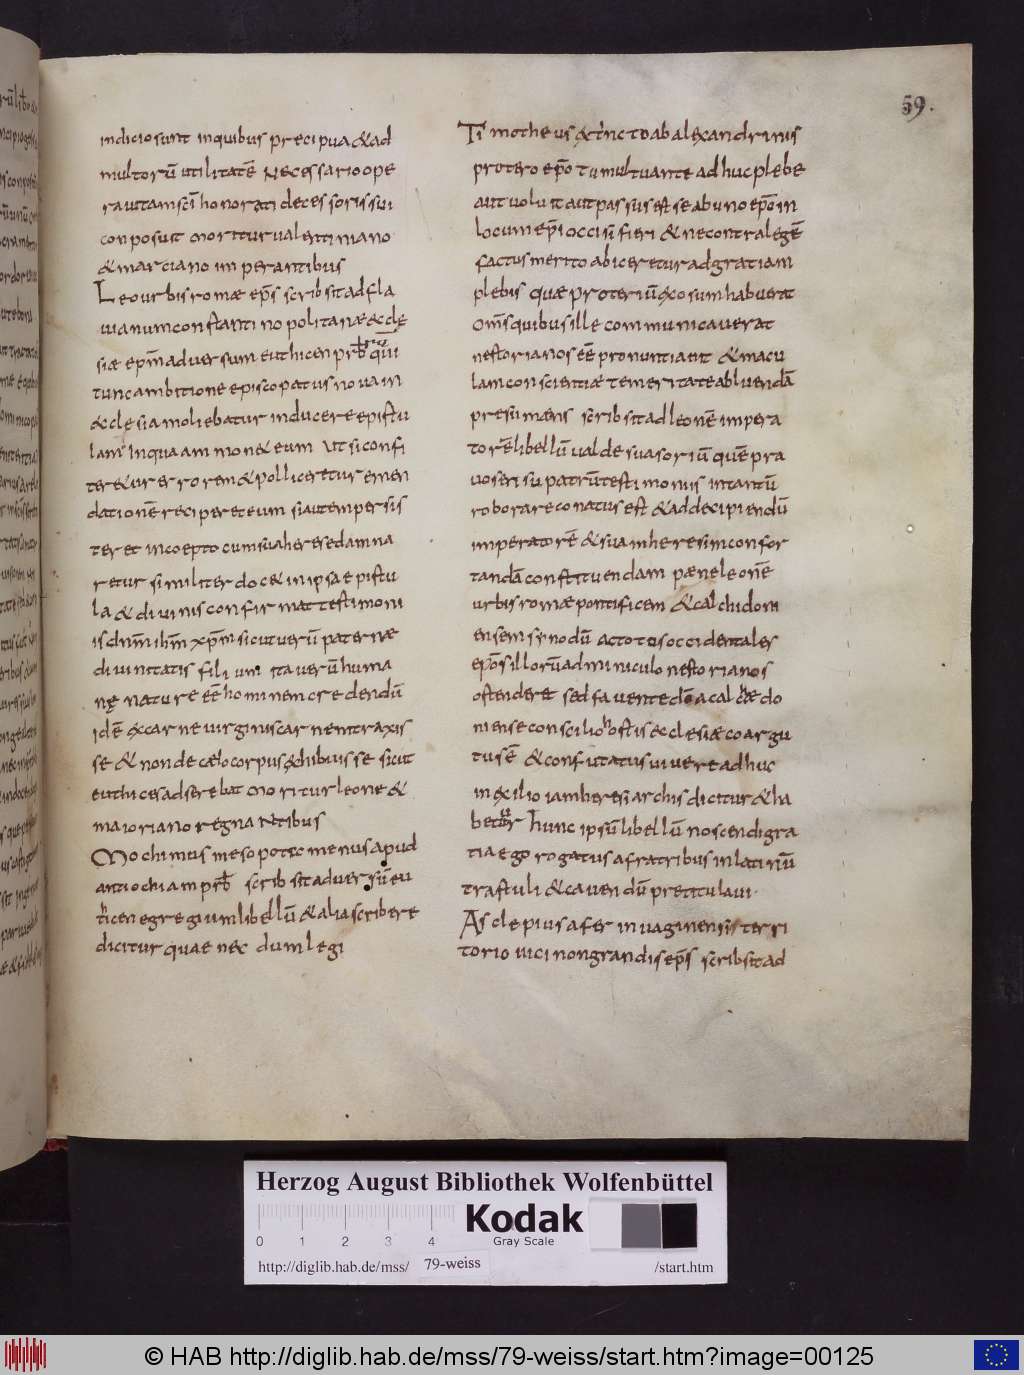 59.
indicio sunt in quibus precipua & ad
multorū utilitatē necessario ope
ra uita m scī honorati decessoris sui
conposuit moritur ualentiniano
& marciano imperantibus
Leo urbis romæ ep̄s scribsit ad fla
uianum constantinopolitanæ æccle
siæ ep̄m aduersum euthicen prb̄ qui
tunc ambitione episcopatus noua in
æcclesia moliebatur inducere epistu
lam In qua ammon& eum ut si confi
ter&ur errorem & pollicer&ur emen
dationē reciperet eum si autem persis
teret in coepto cum sua herese damna
retur similiter doc& in ipsa epistu
la & diuinis confirmat testimoni
is dn̄m ih̄m xp̄m sicut uerū paternæ
diuinitatis filium ita uerū huma
nę nature eē hominem credendū
idē ex carne uirginis carnem traxis
se & non de cælo corpus exhibuisse sicut
euthices adserebat moritur leone &
maioriano regnantibus
Mochimus mesopotamenus apud
antiochiam prb̄ scribsit aduersū eu
ticen egregium libellū & alia scribere
dicitur quae nec dum legi
Timotheus extinc to ab alexandrinis
protero ep̄o tumultuante adhuc plebe
aut uoluit aut passus est se ab uno ep̄o in
locum ep̄i occisi fieri & ne contra legē
factus merito abiceretur ad gratiam
plebis quæ proteriū exosum habuerat
om̄s quibus ille communicauerat
nestorianos eē pronuntiant & macu
lam conscientiæ temeritate abluendā
presumens scribsit ad leonē impera
torē libellū ualde suasoriū quē pra
uo sensu patrū testimoniis in tantū
roborare conatus est & ad decipiendū
imperatorē & suam heresim confor
tandā constituendam pæne leonē
urbis romæ pontificem & calchidon
ensem synodū ac totos occidentales
ep̄os illorū adminiculo nestorianos
ostenderet sed fauente dō a calcedo
niense conscilio hostis æcclesiæ coargu
tus ē & confutatus uiuere adhuc
in exilio iam heresiarchis dicitur & ha
betur hunc ipsū libellū noscendi gra
tia ego rogatus a fratribus in latinū
trastuli & cauendū pretitulaui
Asclepius afer in uaginensis terri
torio uici non grandis ep̄s scribsit ad
Herzog August Bibliothek Wolfenbüttel
0 1 2 3 4
Kodak
Gray Scale
http://diglib.hab.de/mss/ 79-weiss /start.htm
© HAB http://diglib.hab.de/mss/79-weiss/start.htm?image=00125